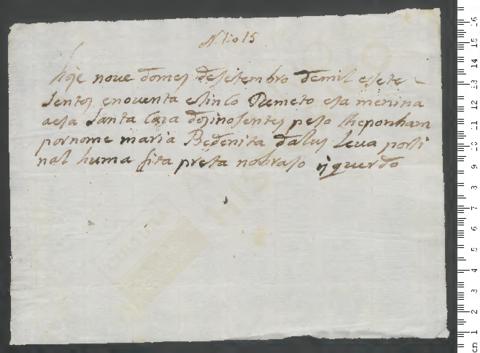 N 1015
Hoje nove do mes de Setembro de mil e sete
sentos e noventa e sinco Remeto esa menina
a esa Santa Caza dos inosentes peso lhe ponham
por nome maria Bedenita da lus Leva por si
nal huma fita preta no braso isquerdo